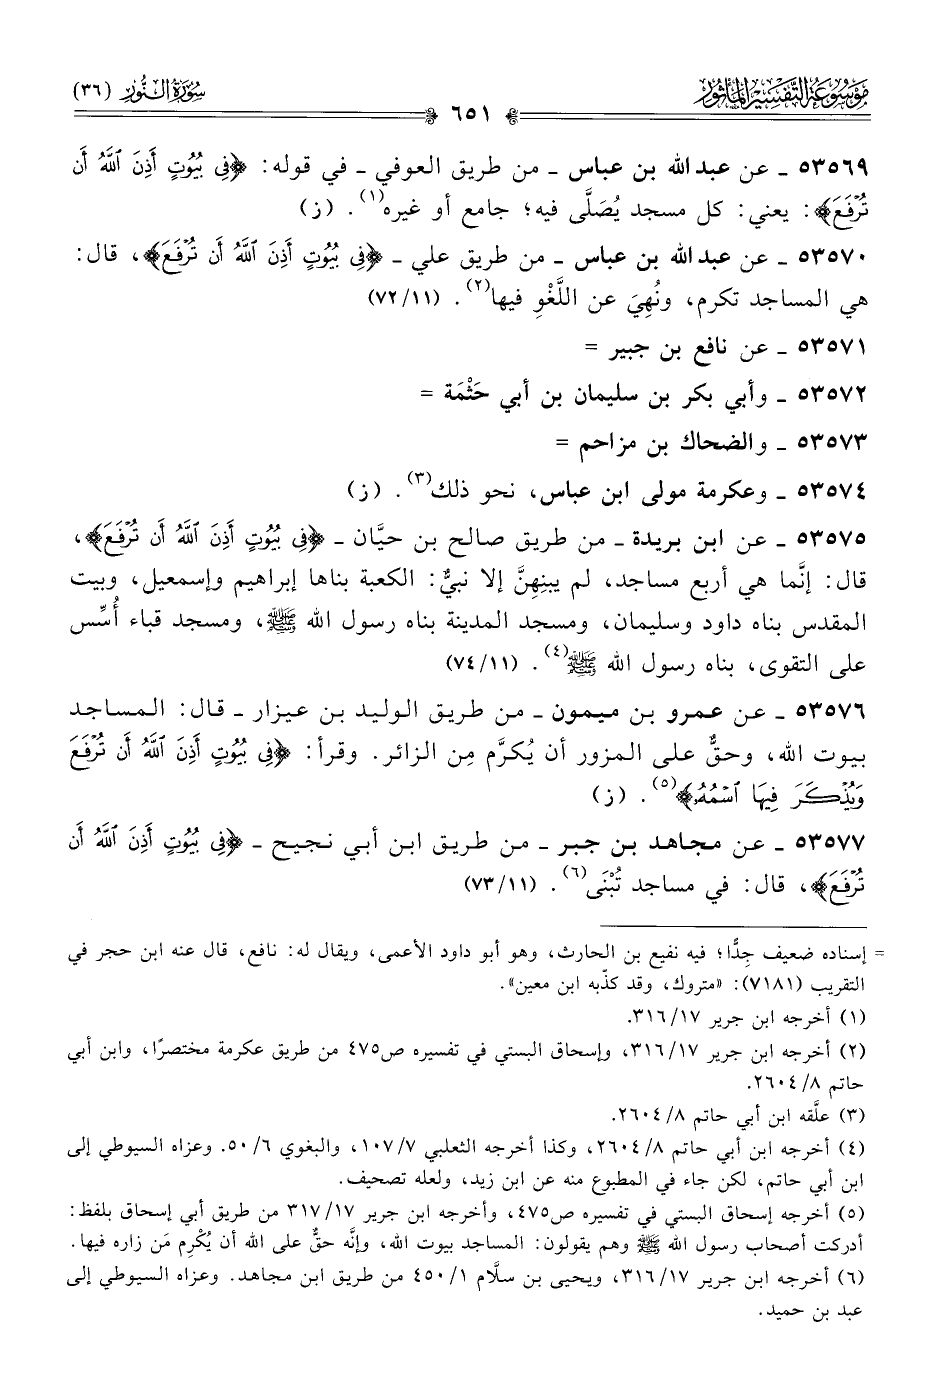 مَوْسُوعَة التَّفْسِير المَأثُور
سُورَةُ النُّور (٣٦)
٦٥١
٥٣٥٦٩ ـ عن عبد الله بن عباس ـ من طريق العوفي ـ في قوله: ﴿فِي بُيُوتٍ أَذِنَ ٱللَّهُ أَن
تُرْفَعَ﴾: يعني: كل مسجد يُصَلَّى فيه؛ جامع أو غيره(١). (ز)
٥٣٥٧٠ ـ عن عبد الله بن عباس ـ من طريق علي ـ ﴿فِي بُيُوتٍ أَذِنَ ٱللَّهُ أَن تُرْفَعَ﴾، قال:
هي المساجد تكرم، ونُهِيَ عن اللَّغْوِ فيها(٢). (١١/ ٧٢)
٥٣٥٧١ ـ عن نافع بن جبير =
٥٣٥٧٢ ـ وأبي بكر بن سليمان بن أبي حَثْمَة =
٥٣٥٧٣ ـ والضحاك بن مزاحم =
٥٣٥٧٤ ـ وعكرمة مولى ابن عباس، نحو ذلك(٣). (ز)
٥٣٥٧٥ ـ عن ابن بريدة ـ من طريق صالح بن حيَّان ـ ﴿فِي بُيُوتٍ أَذِنَ ٱللَّهُ أَن تُرْفَعَ﴾،
قال: إنَّما هي أربع مساجد، لم يبنِهِنَّ إلا نبيٌّ: الكعبة بناها إبراهيم وإسمعيل، وبيت
المقدس بناه داود وسليمان، ومسجد المدينة بناه رسول الله ﷺ، ومسجد قباء أُسِّس
على التقوى، بناه رسول الله ﷺ(٤). (١١/ ٧٤)
٥٣٥٧٦ ـ عن عمرو بن ميمون ـ من طريق الوليد بن عيزار ـ قال: المساجد
بيوت الله، وحقٌّ على المزور أن يُكرَّم مِن الزائر. وقرأ: ﴿فِي بُيُوتٍ أَذِنَ ٱللَّهُ أَن تُرْفَعَ
وَيُذْكَرَ فِيهَا ٱسْمُهُۥ﴾(٥). (ز)
٥٣٥٧٧ ـ عن مجاهد بن جبر ـ من طريق ابن أبي نجيح ـ ﴿فِي بُيُوتٍ أَذِنَ ٱللَّهُ أَن
تُرْفَعَ﴾، قال: في مساجد تُبْنَى(٦). (١١/ ٧٣)
= إسناده ضعيف جِدًّا؛ فيه نفيع بن الحارث، وهو أبو داود الأعمى، ويقال له: نافع، قال عنه ابن حجر في
التقريب (٧١٨١): «متروك، وقد كذّبه ابن معين».
(١) أخرجه ابن جرير ١٧/ ٣١٦.
(٢) أخرجه ابن جرير ١٧/ ٣١٦، وإسحاق البستي في تفسيره ص٤٧٥ من طريق عكرمة مختصرًا، وابن أبي
حاتم ٨/ ٢٦٠٤.
(٣) علَّقه ابن أبي حاتم ٨/ ٢٦٠٤.
(٤) أخرجه ابن أبي حاتم ٨/ ٢٦٠٤، وكذا أخرجه الثعلبي ٧/ ١٠٧، والبغوي ٦/ ٥٠. وعزاه السيوطي إلى
ابن أبي حاتم، لكن جاء في المطبوع منه عن ابن زيد، ولعله تصحيف.
(٥) أخرجه إسحاق البستي في تفسيره ص٤٧٥، وأخرجه ابن جرير ١٧/ ٣١٧ من طريق أبي إسحاق بلفظ:
أدركت أصحاب رسول الله ﷺ وهم يقولون: المساجد بيوت الله، وإنَّه حقٌّ على الله أن يُكْرِم مَن زاره فيها.
(٦) أخرجه ابن جرير ١٧/ ٣١٦، ويحيى بن سلَّام ١/ ٤٥٠ من طريق ابن مجاهد. وعزاه السيوطي إلى
عبد بن حميد.